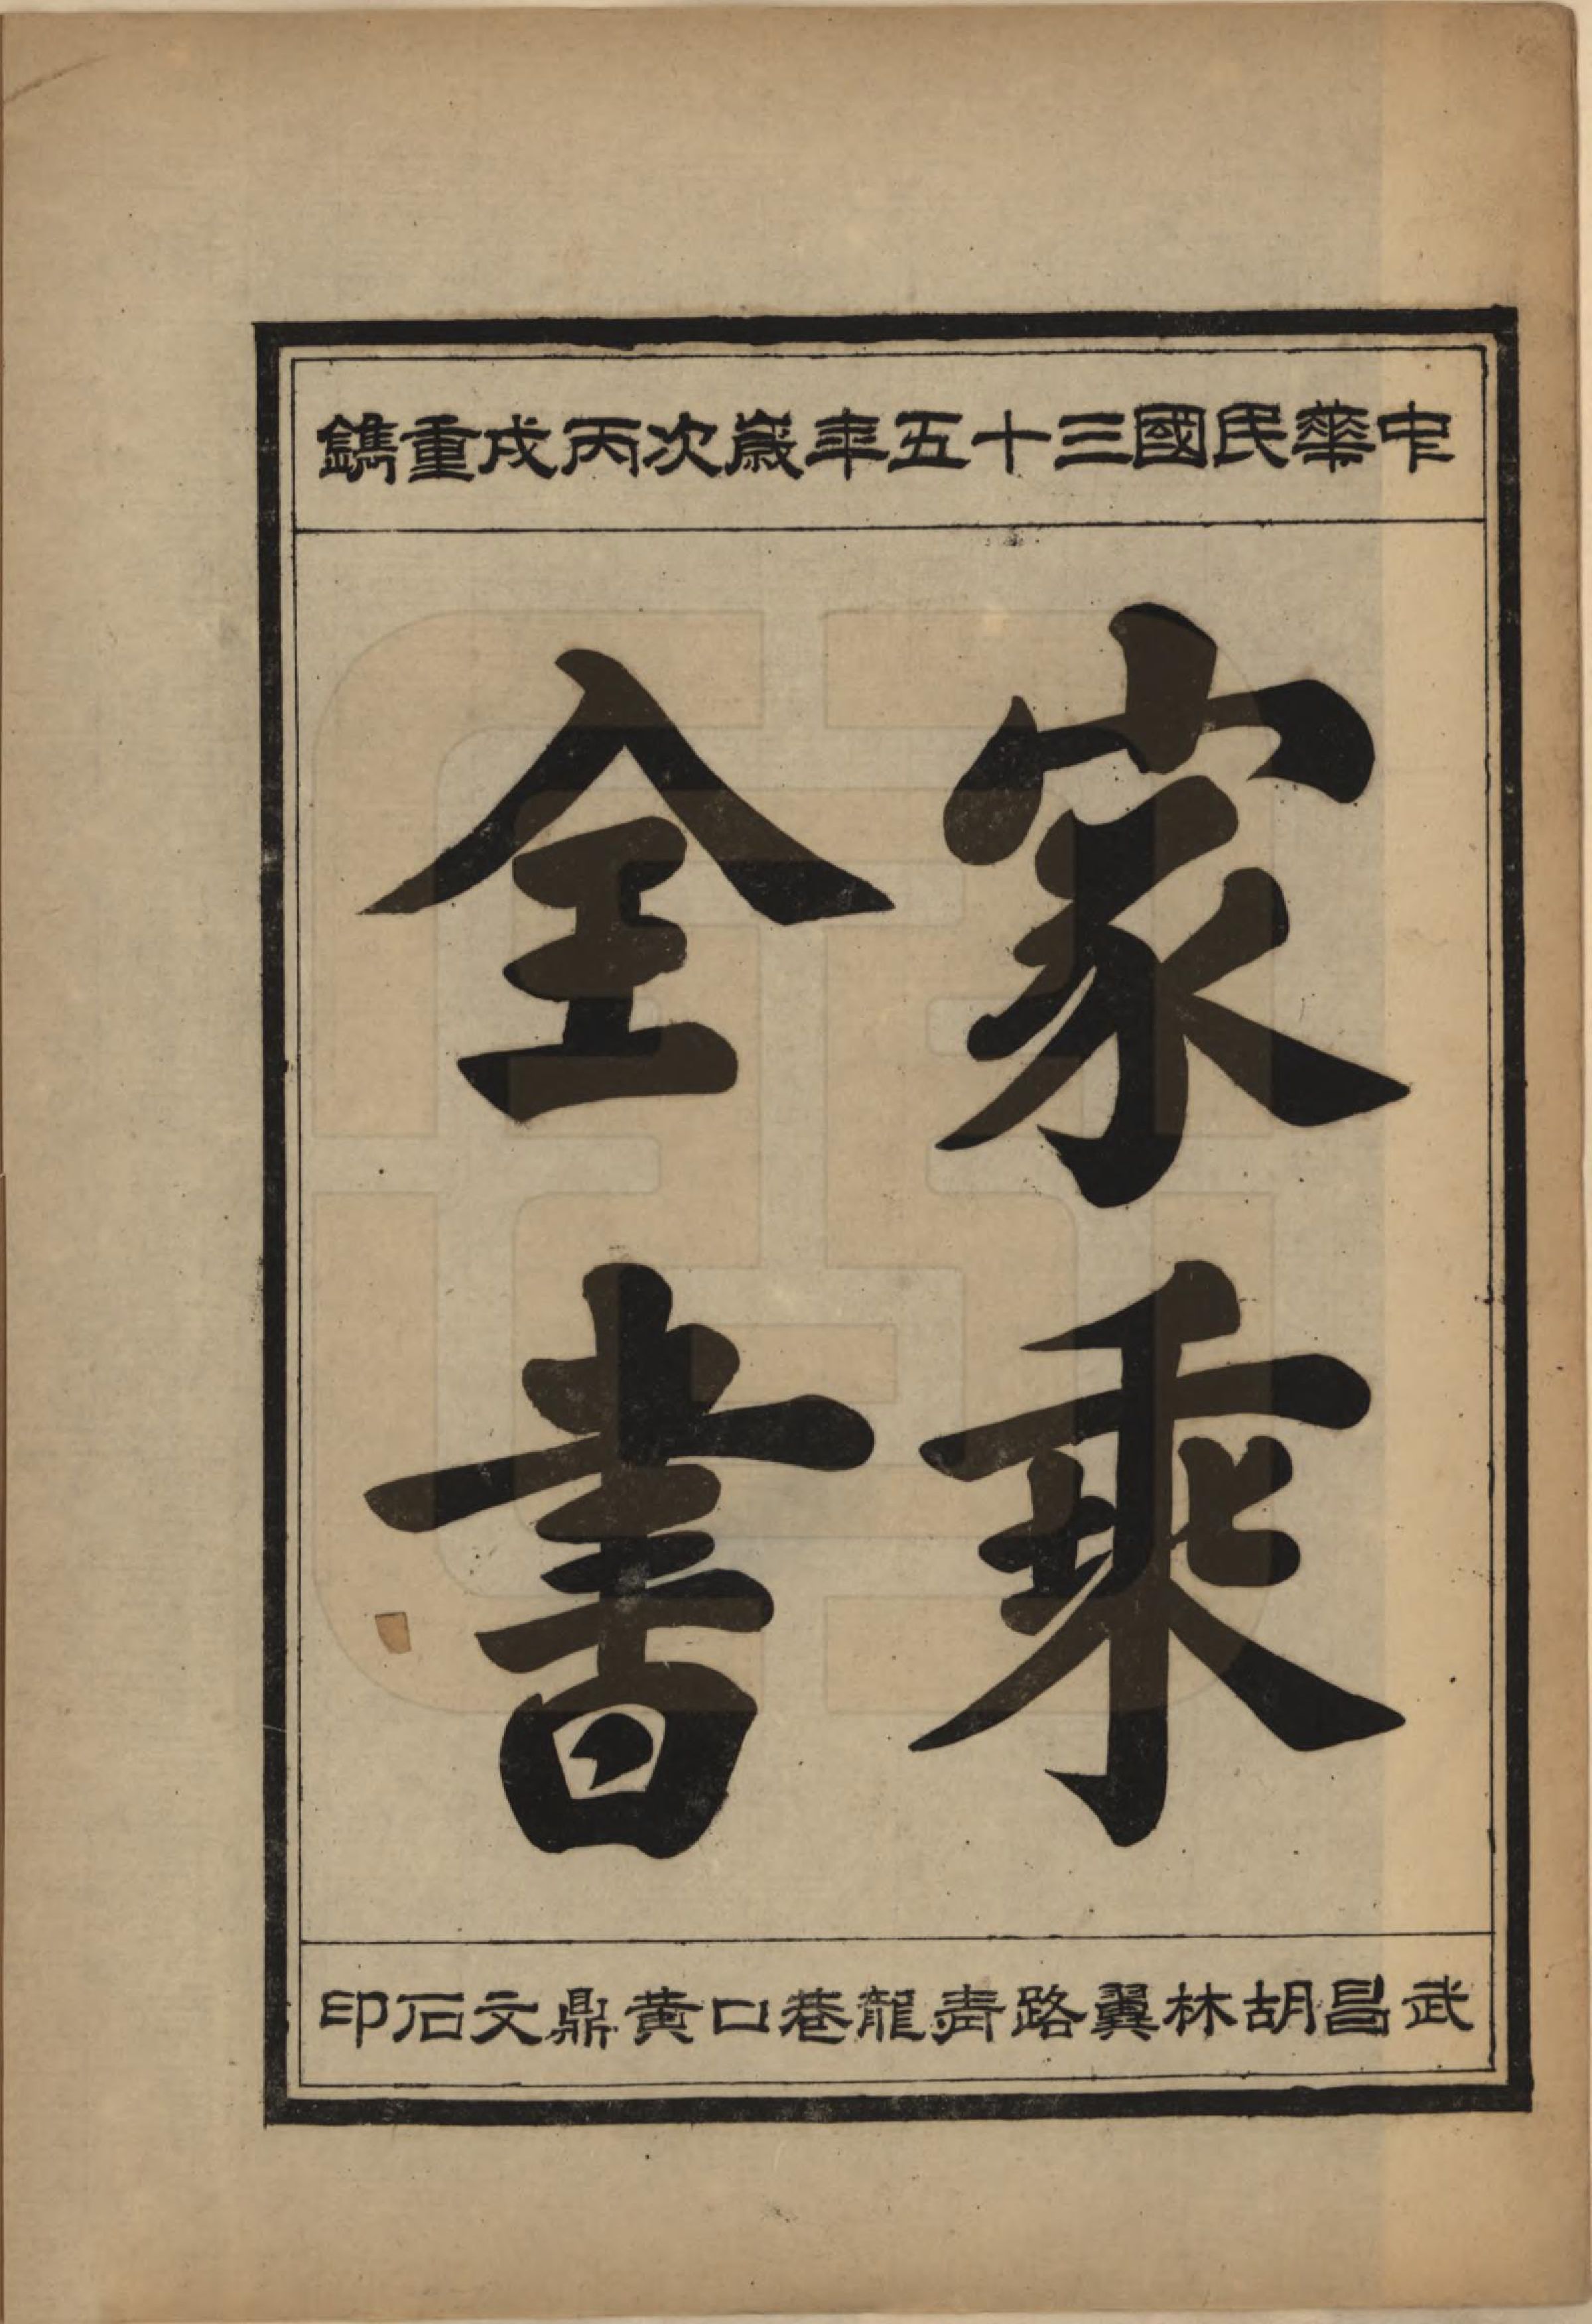 中華民國三十五年歲次丙戌重鐫
家乘
全書
武昌胡林翼路靑龍巷口黃鼎文石印